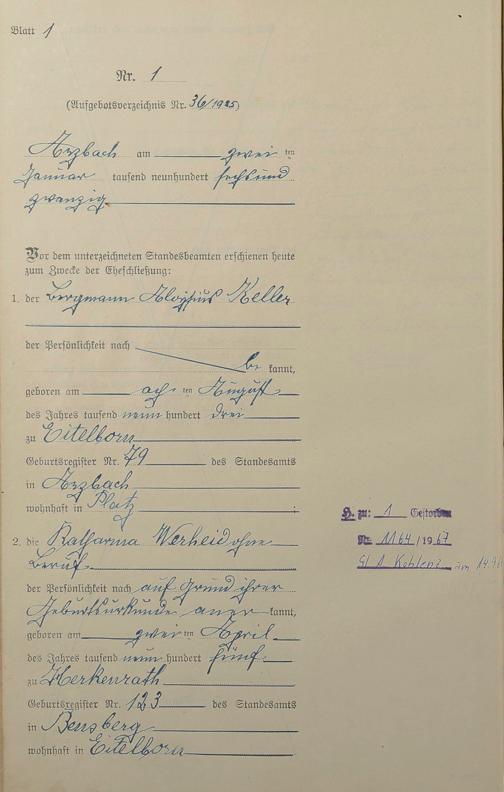 Blatt 1
Nr. 1
(Aufgebotsverzeichnis Nr. 36/1925)
Arzbach am zwei ten
Januar tausend neunhundert sechsund
zwanzig.
Vor dem unterzeichneten Standesbeamten erschienen heute
zum Zwecke der Eheschließung:
1. der Bergmann Aloysius Keller
der Persönlichkeit nach
be kannt,
geboren am ach ten August
des Jahres tausend neun hundert drei
zu Eitelborn
Geburtsregister Nr. 79 des Standesamts
in Arzbach
wohnhaft in Platz ;
2. die Katharina Werheid ohne
Beruf
der Persönlichkeit nach auf Grund ihrer
Geburtsurkunde aner kannt,
geboren am zwei ten April
des Jahres tausend neun hundert fünf
zu Herkenrath
Geburtsregister Nr. 123 des Standesamts
in Bensberg
wohnhaft in Eitelborn
H. zu: 1 Gestorben
Nr. 1164/1967
St A Koblenz am